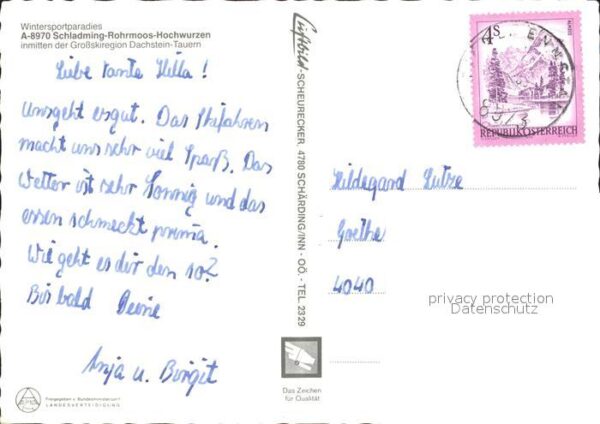 Wintersportparadies
A-8970 Schladming-Rohrmoos-Hochwurzen
inmitten der Großskiregion Dachstein-Tauern
Liebe tante Hilla!
Unsgeht esgut. Das Skifahren
macht uns sehr viel Spaß. Das
Wetter ist sehr sonnig und das
essen schmeckt prima.
Wie geht es dir den so?
Bis bald Deine
Anja u. Birgit
Freigegeben v. Bundesministerium f.
LANDESVERTEIDIGUNG
Luftbild-SCHEURECKER, 4780 SCHÄRDING/INN - OÖ. - TEL. 2329
Das Zeichen
für Qualität
4S
REPUBLIK ÖSTERREICH
8973
Hildegard Lutze
Goethe
4040
privacy protection
Datenschutz